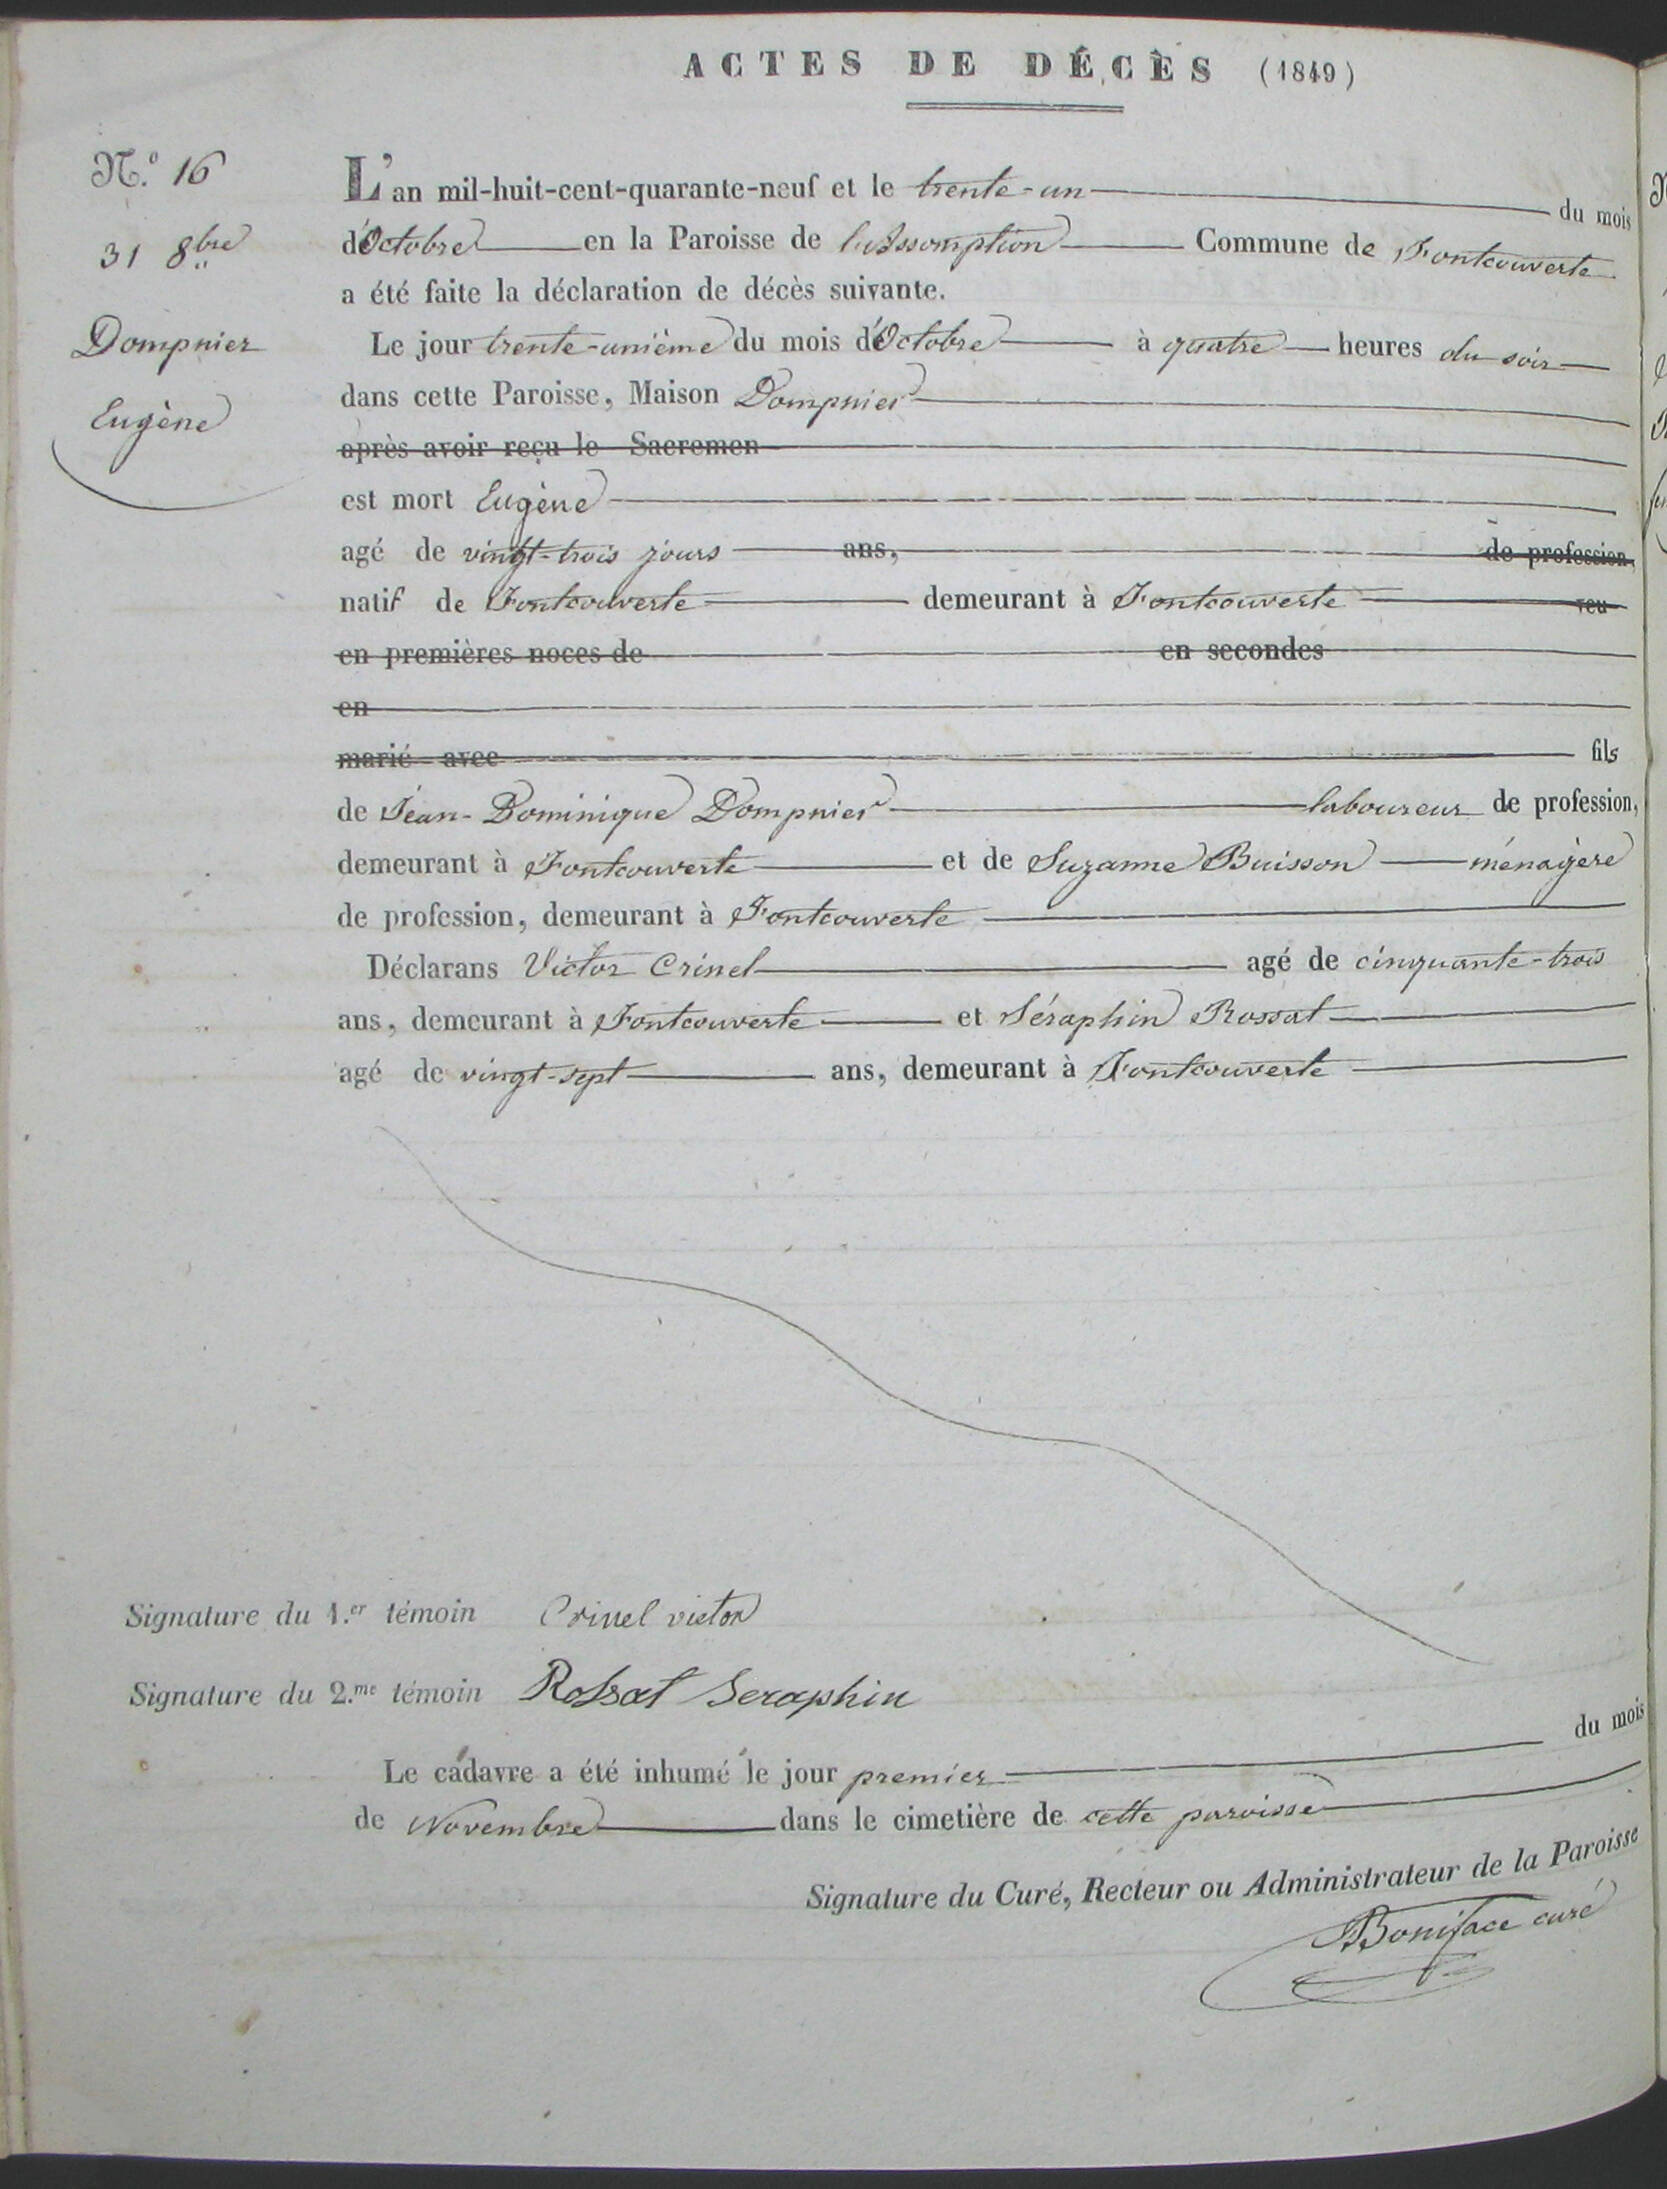 ACTES DE DÉCÈS (1849)
N.° 16
31 8bre
Dompnier
Eugène
L'an mil-huit-cent-quarante-neuf et le trente-un du mois
d'Octobre en la Paroisse de l'Assomption Commune de Fontcouverte
a été faite la déclaration de décès suivante.
Le jour trente-unième du mois d'Octobre à quatre heures du soir
dans cette Paroisse, Maison Dompnier
après avoir reçu le Sacremen
est mort Eugène
agé de vingt-trois jours ans, de profession,
natif de Fontcouverte demeurant à Fontcouverte veu
en premières noces de en secondes
en
marié avec fils
de Jean-Dominique Dompnier laboureur de profession,
demeurant à Fontcouverte et de Suzanne Buisson ménagère
de profession, demeurant à Fontcouverte
Déclarans Victor Crinel agé de cinquante-trois
ans, demeurant à Fontcouverte et Séraphin Rossat
agé de vingt-sept ans, demeurant à Fontcouverte
Signature du 1.er témoin Crinel victor
Signature du 2.me témoin Rossat Seraphin
Le cadavre a été inhumé le jour premier du mois
de Novembre dans le cimetière de cette paroisse
Signature du Curé, Recteur ou Administrateur de la Paroisse
Boniface curé